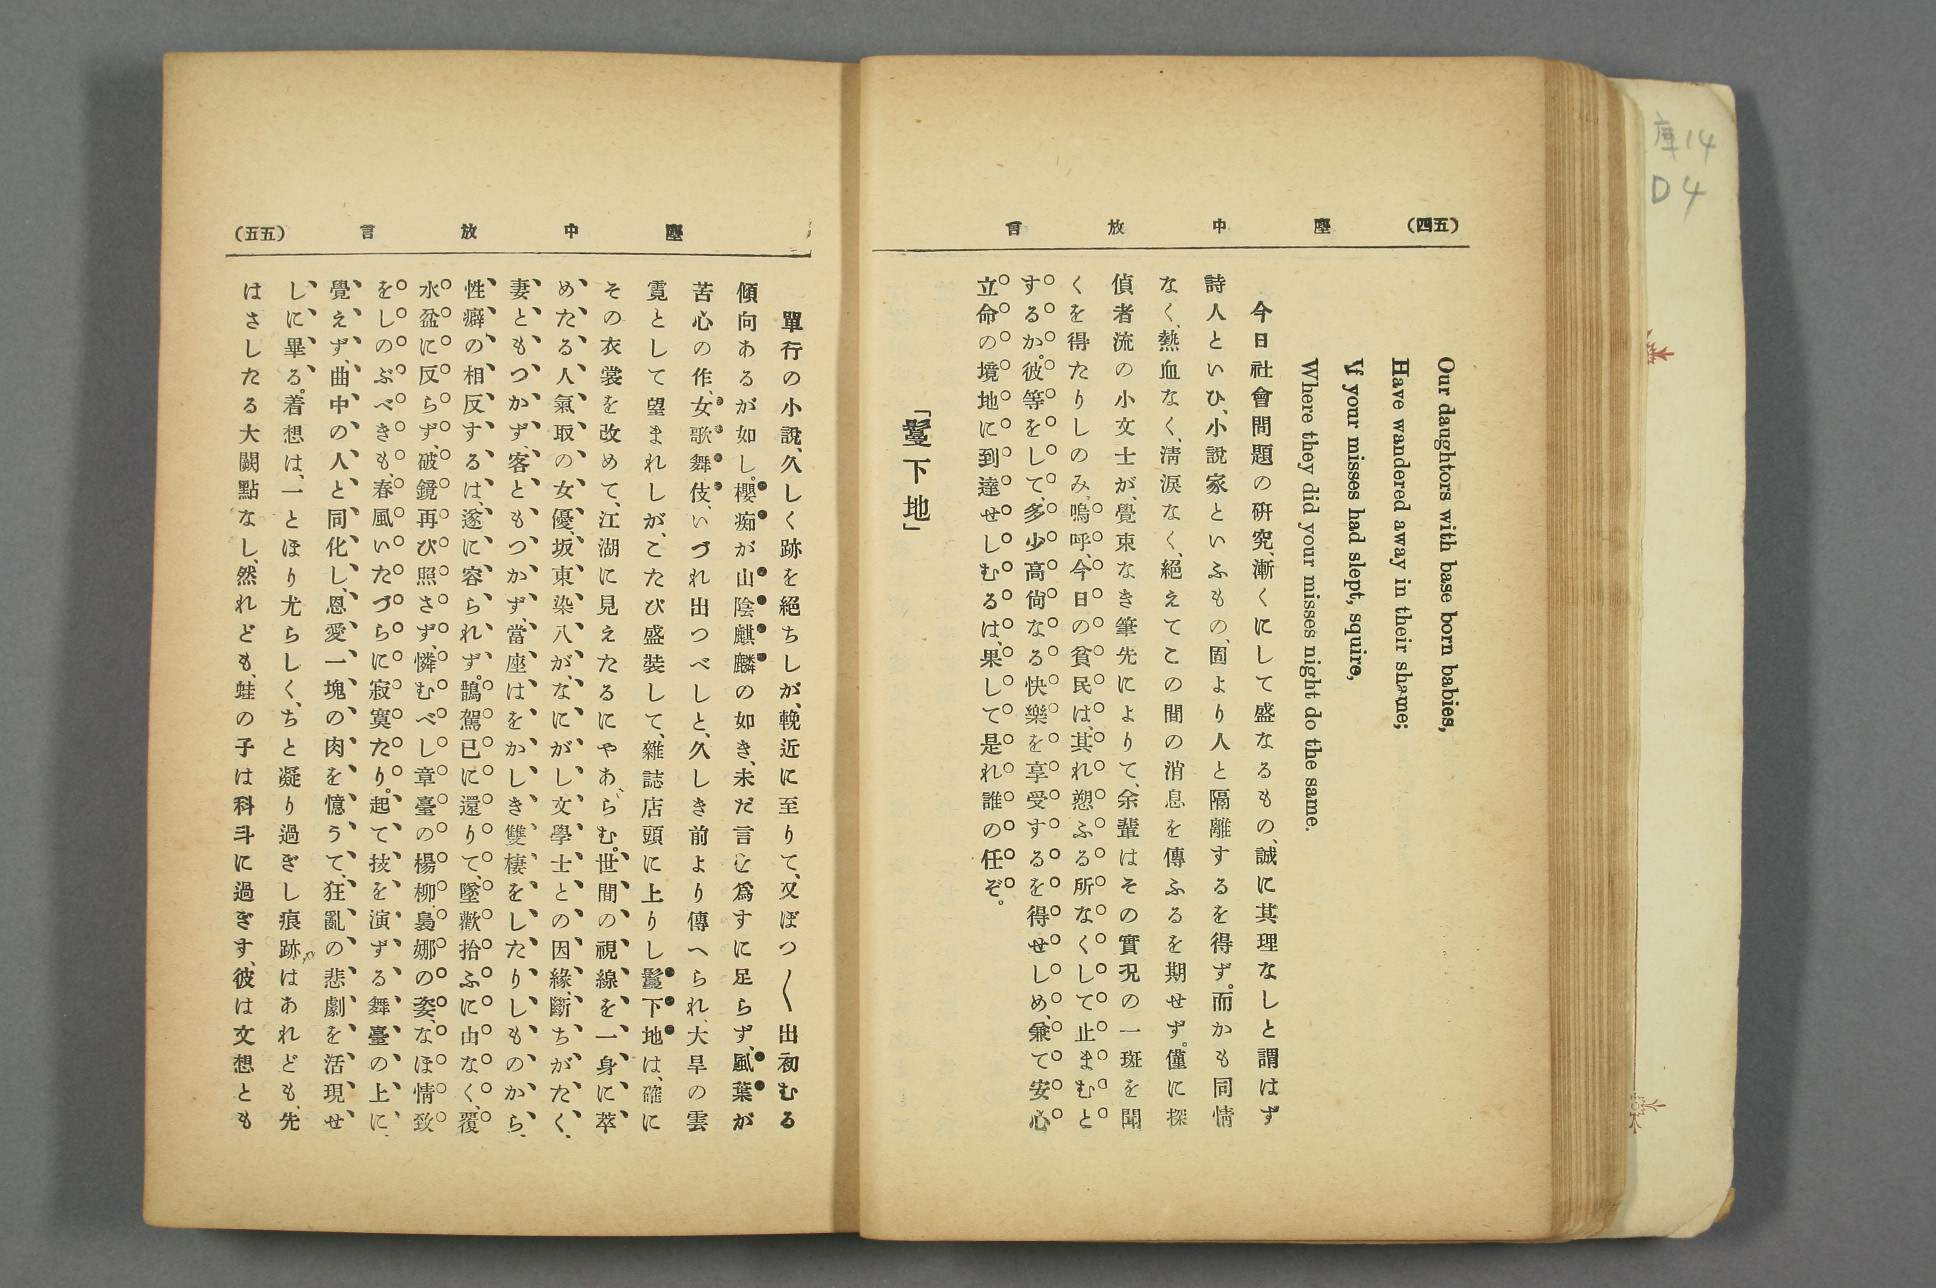 (四五)　塵中放言
Our daughtors with base born babies,
Have wandered away in their shame;
If your misses had slept, squire,
Where they did your misses night do the same.
今日社會問題の硏究、漸くにして盛なるもの、誠に其理なしと謂はず
詩人といひ、小說家といふもの、固より人と隔離するを得ず。而かも同情
なく、熱血なく、淸淚なく、絕えてこの間の消息を傳ふるを期せず。僅に探
偵者流の小文士が、覺束なき筆先によりて、余輩はその實況の一斑を聞
くを得たりしのみ、嗚呼、今日の貧民は、其れ愬ふる所なくして止まむと
するか。彼等をして、多少高尙なる快樂を享受するを得せしめ、兼て安心
立命の境地に到達せしむるは、果して是れ誰の任ぞ。
「鬘下地」
塵中放言　(五五)
單行の小說、久しく跡を絕ちしが、輓近に至りて、又ぼつ〱出初むる
傾向あるが如し。櫻痴が山陰麒麟の如き、未だ言を爲すに足らず、風葉が
苦心の作、女歌舞伎、いづれ出つべしと、久しき前より傳へられ、大旱の雲
霓として望まれしが、こたび盛裝して、雜誌店頭に上りし鬘下地は、確に
その衣裳を改めて、江湖に見えたるにやあらむ。世間の視線を一身に萃
めたる人氣取の女優坂東染八が、なにがし文學士との因緣、斷ちがたく、
妻ともつかず、客ともつかず、當座はをかしき雙棲をしたりしものから、
性癖の相反するは、遂に容られず。鵲駕已に還りて、墜歡拾ふに由なく、覆
水盆に反らず、破鏡再び照さず、憐むべし章臺の楊柳、裊娜の姿、なほ情致
をしのぶべきも、春風いたづらに寂寞たり。起て技を演ずる舞臺の上に、
覺えず、曲中の人と同化し、恩愛一塊の肉を憶うて、狂亂の悲劇を活現せ
しに畢る。着想は、一とほり尤らしく、ちと凝り過ぎし痕跡はあれども、先
はさしたる大闕點なし、然れども、蛙の子は科斗に過ぎす、彼は文想とも
庫14
D4